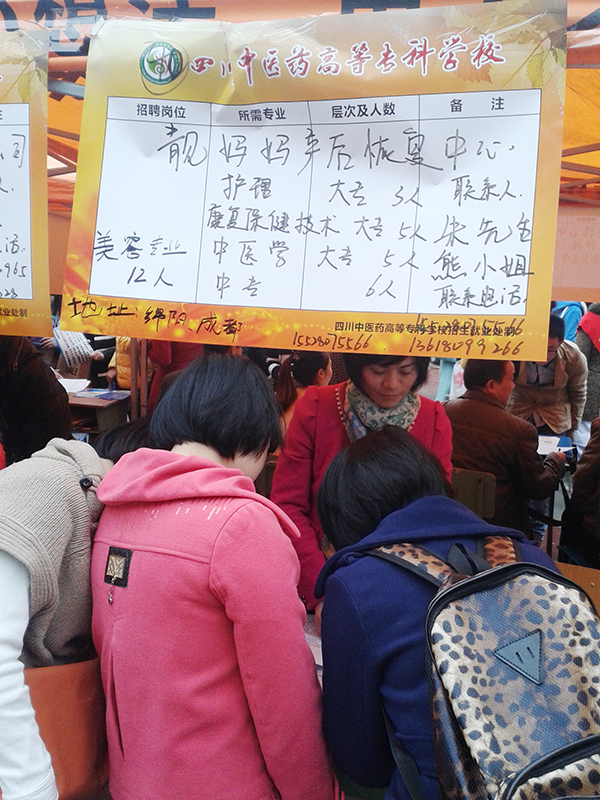 四川中医药高等专科学校
招聘岗位 所需专业 层次及人数 备 注
靓妈妈产后恢复中心.
护理 大专 3人 联系人.
康复保健技术 大专 5人 宋先生
美容专业 中医学 大专 5人 熊小姐
12人 中专 6人 联系电话.
地址: 绵阳.成都
四川中医药高等专科学校招生就业处制
15528075566
15528075566. 13618099266
司
人.
电话.
0965
28
业处制